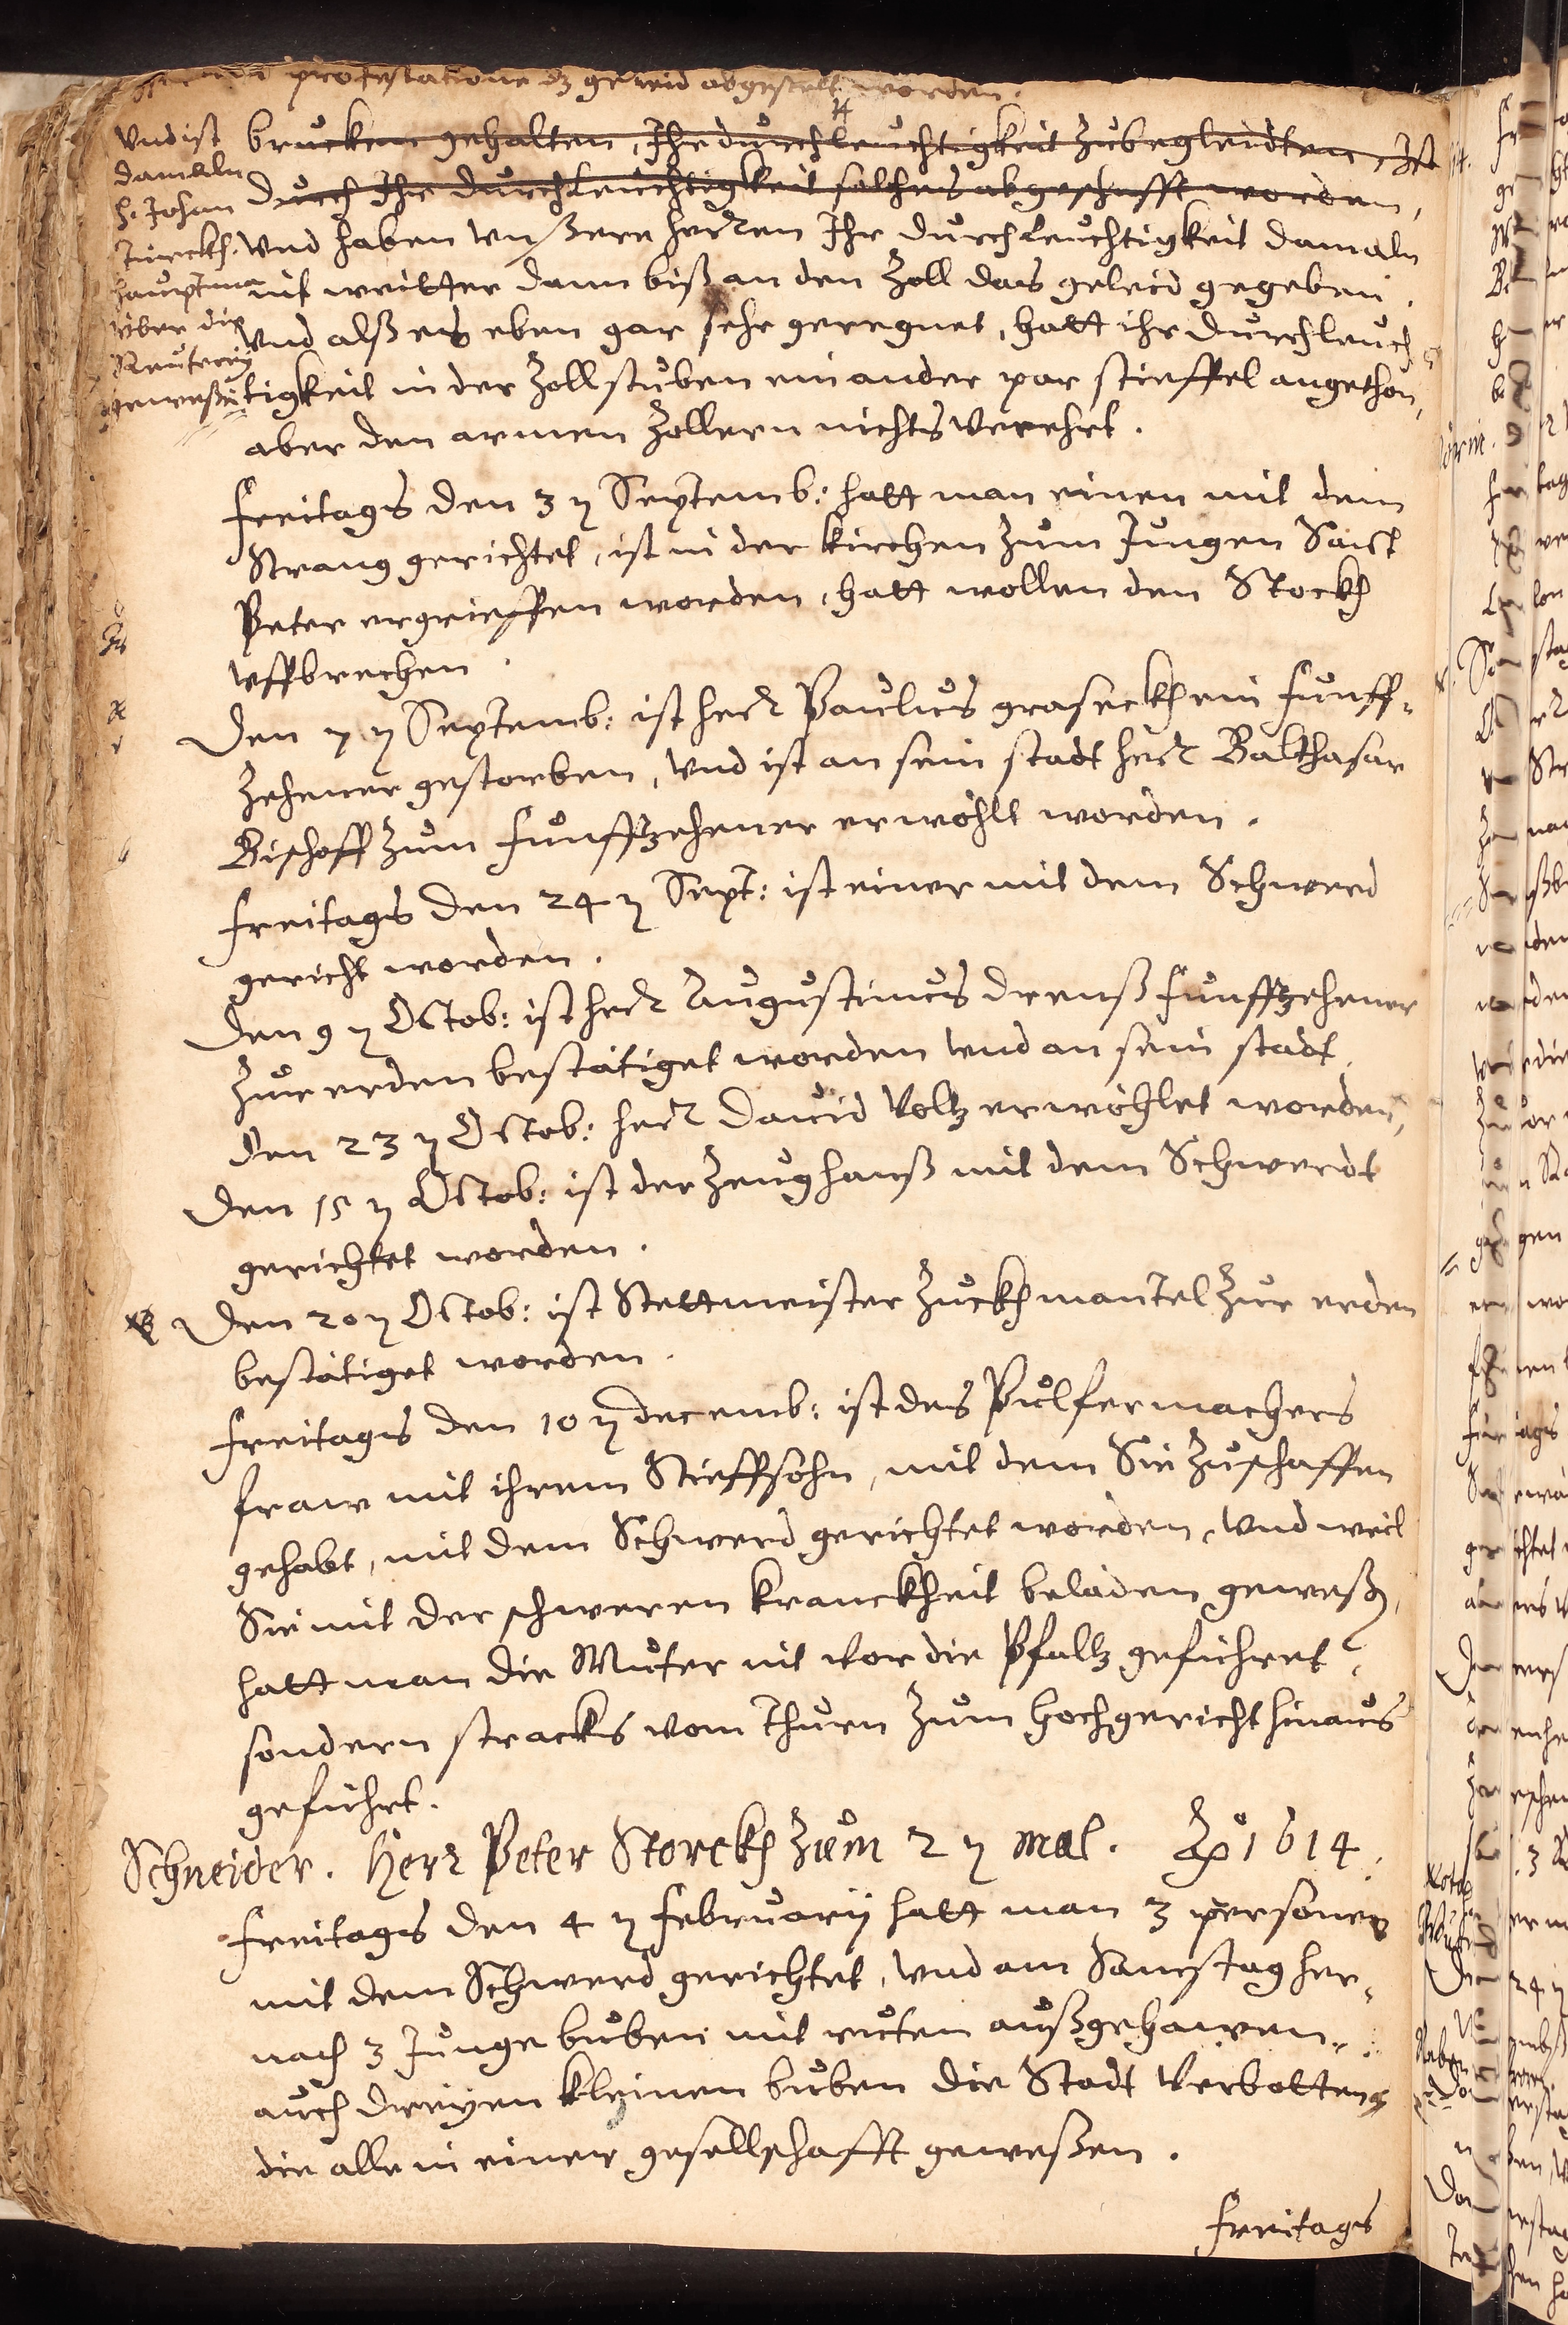 protestatione dz geleid abgestelt worden.
brucken gehalten, Ihr durchleuchtigkeit zubegleidten, Ist
durch Ihr durchleuchtigkeit solches abgeschafft worden,
Vnd ist
damaln
H. Johan
Turckh.
hauptman
über die
Reuterey
geweßen
Vnd haben Vnßere herren Ihr durchleuchtigkeit damaln
nit weitter dann biß an den Zoll das geleid gegeben.
Vnd alß es eben gar sehr geregnet, hatt ihr durchleuch
tigkeit in der Zollstuben ein ander par stieffel angethon,
aber den armen Zollern nichts Verehrt.
Freitags den 3 ten Septemb: hatt man einen mit dem
Strang gerichtet, ist in der kirchen zum Jungen Sanct
Peter ergrieffen worden, hatt wollen den Stockh
vffbrechen.
Den 7 ten Septemb: ist herr Paulus graseckh ein funff-
zehener gestorben, Vnd ist an sein stadt herr Balthasar
Bischoff zum funffzehener erwöhlt worden.
Freitags den 24 ten Sept: ist einer mit dem Schwerd
gericht worden.
Den 9 ten Octob: ist herr Augustinus drenß funffzehener
zur erden bestätiget worden Vnd an sein stadt
den 23 ten Octob: herr Dauid Voltz erwöhlet worden,
Den 15 ten Octob: ist der Zeughanß mit dem Schwerdt
gerichtet worden.
Den 20 ten Octob: ist Stettmeister Zuckhmantel zur erden
bestätiget worden.
Freitags den 10 ten decemb: ist des Pulfermachers
fraw mit ihrem Stieffsohn, mit dem Sie zuschaffen
gehabt, mit dem Schwerd gerichtet worden, Vnd weil
Sie mit der schweren kranckheit beladen geweßen,
hatt man die Muter nit Vor die Pfaltz geführet,
sondern stracks vom Thurn zum hochgericht hinaus
geführt.
Schneider. Herr Peter Storckh zum 2 ten mal. Ao 1614.
Freitags den 4 ten February hatt man 3 personen
mit dem Schwerd gerichtet, Vnd am Samstag her-
nach 3 Junge buben mit ruten außgehawen,
auch dreyen kleinen buben die Stadt Verbotten,
die alle in einer gesellschafft geweßen.
Freitags